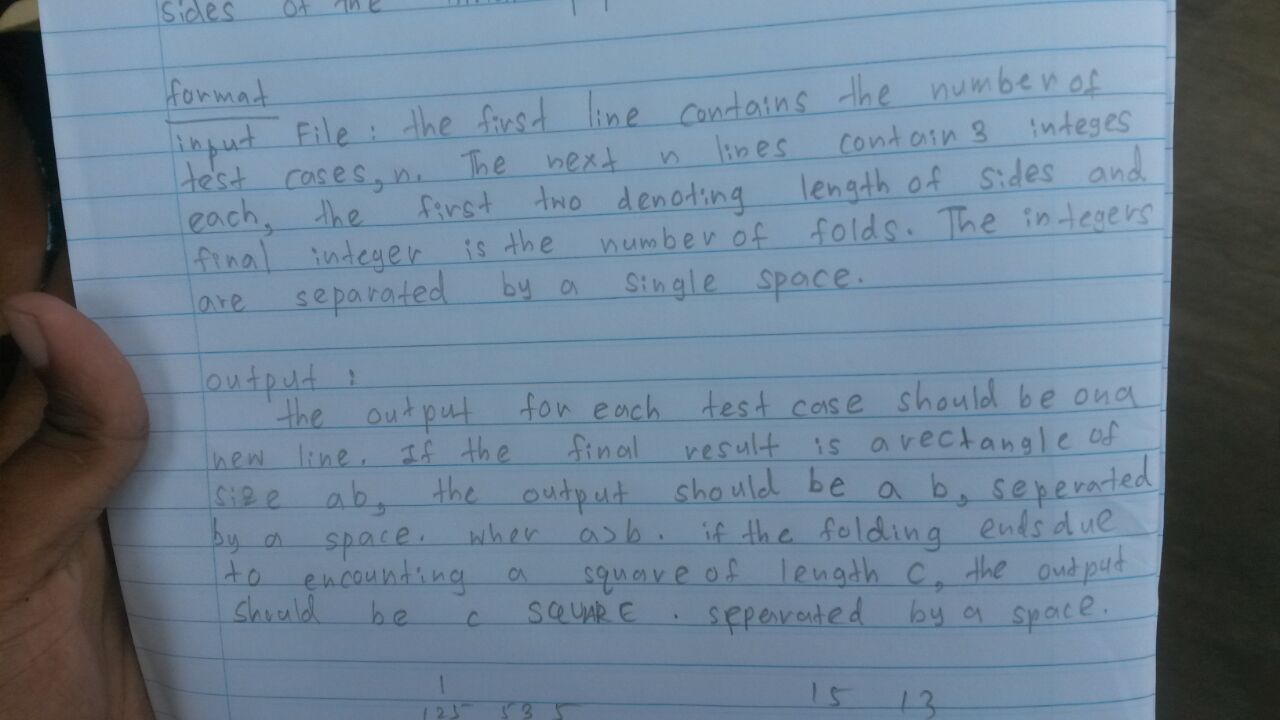 sides of the
format
input File : the first line contains the number of
test cases, n. The next n lines contain 3 integes
each, the first two denoting length of sides and
final integer is the number of folds. The integers
are separated by a single space.
output :
the output for each test case should be on a
new line. If the final result is a rectangle of
size ab, the output should be a b, seperated
by a space. wher a>b. if the folding ends due
to encounting a square of length c, the output
should be c SQUARE . seperated by a space.
1
125 53 5
15 13